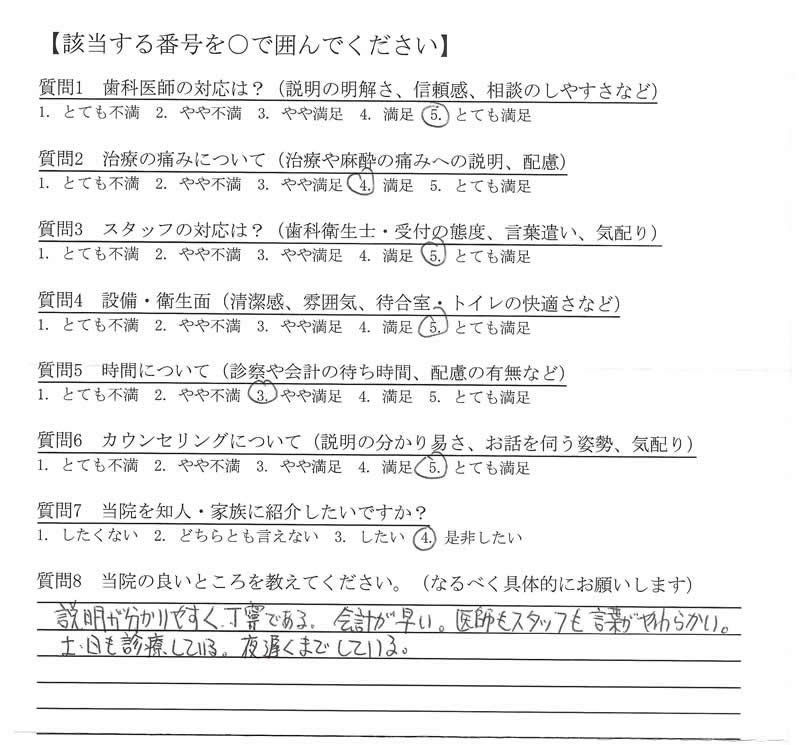 【該当する番号を〇で囲んでください】
質問1 歯科医師の対応は？（説明の明解さ、信頼感、相談のしやすさなど）
1. とても不満 2. やや不満 3. やや満足 4. 満足 5. とても満足
質問2 治療の痛みについて（治療や麻酔の痛みへの説明、配慮）
1. とても不満 2. やや不満 3. やや満足 4. 満足 5. とても満足
質問3 スタッフの対応は？（歯科衛生士・受付の態度、言葉遣い、気配り）
1. とても不満 2. やや不満 3. やや満足 4. 満足 5. とても満足
質問4 設備・衛生面（清潔感、雰囲気、待合室・トイレの快適さなど）
1. とても不満 2. やや不満 3. やや満足 4. 満足 5. とても満足
質問5 時間について（診察や会計の待ち時間、配慮の有無など）
1. とても不満 2. やや不満 3. やや満足 4. 満足 5. とても満足
質問6 カウンセリングについて（説明の分かり易さ、お話を伺う姿勢、気配り）
1. とても不満 2. やや不満 3. やや満足 4. 満足 5. とても満足
質問7 当院を知人・家族に紹介したいですか？
1. したくない 2. どちらとも言えない 3. したい 4. 是非したい
質問8 当院の良いところを教えてください。（なるべく具体的にお願いします）
説明が分かりやすく、丁寧である。会計が早い。医師もスタッフも言葉がやわらかい。
土・日も診療している。夜遅くまでしている。